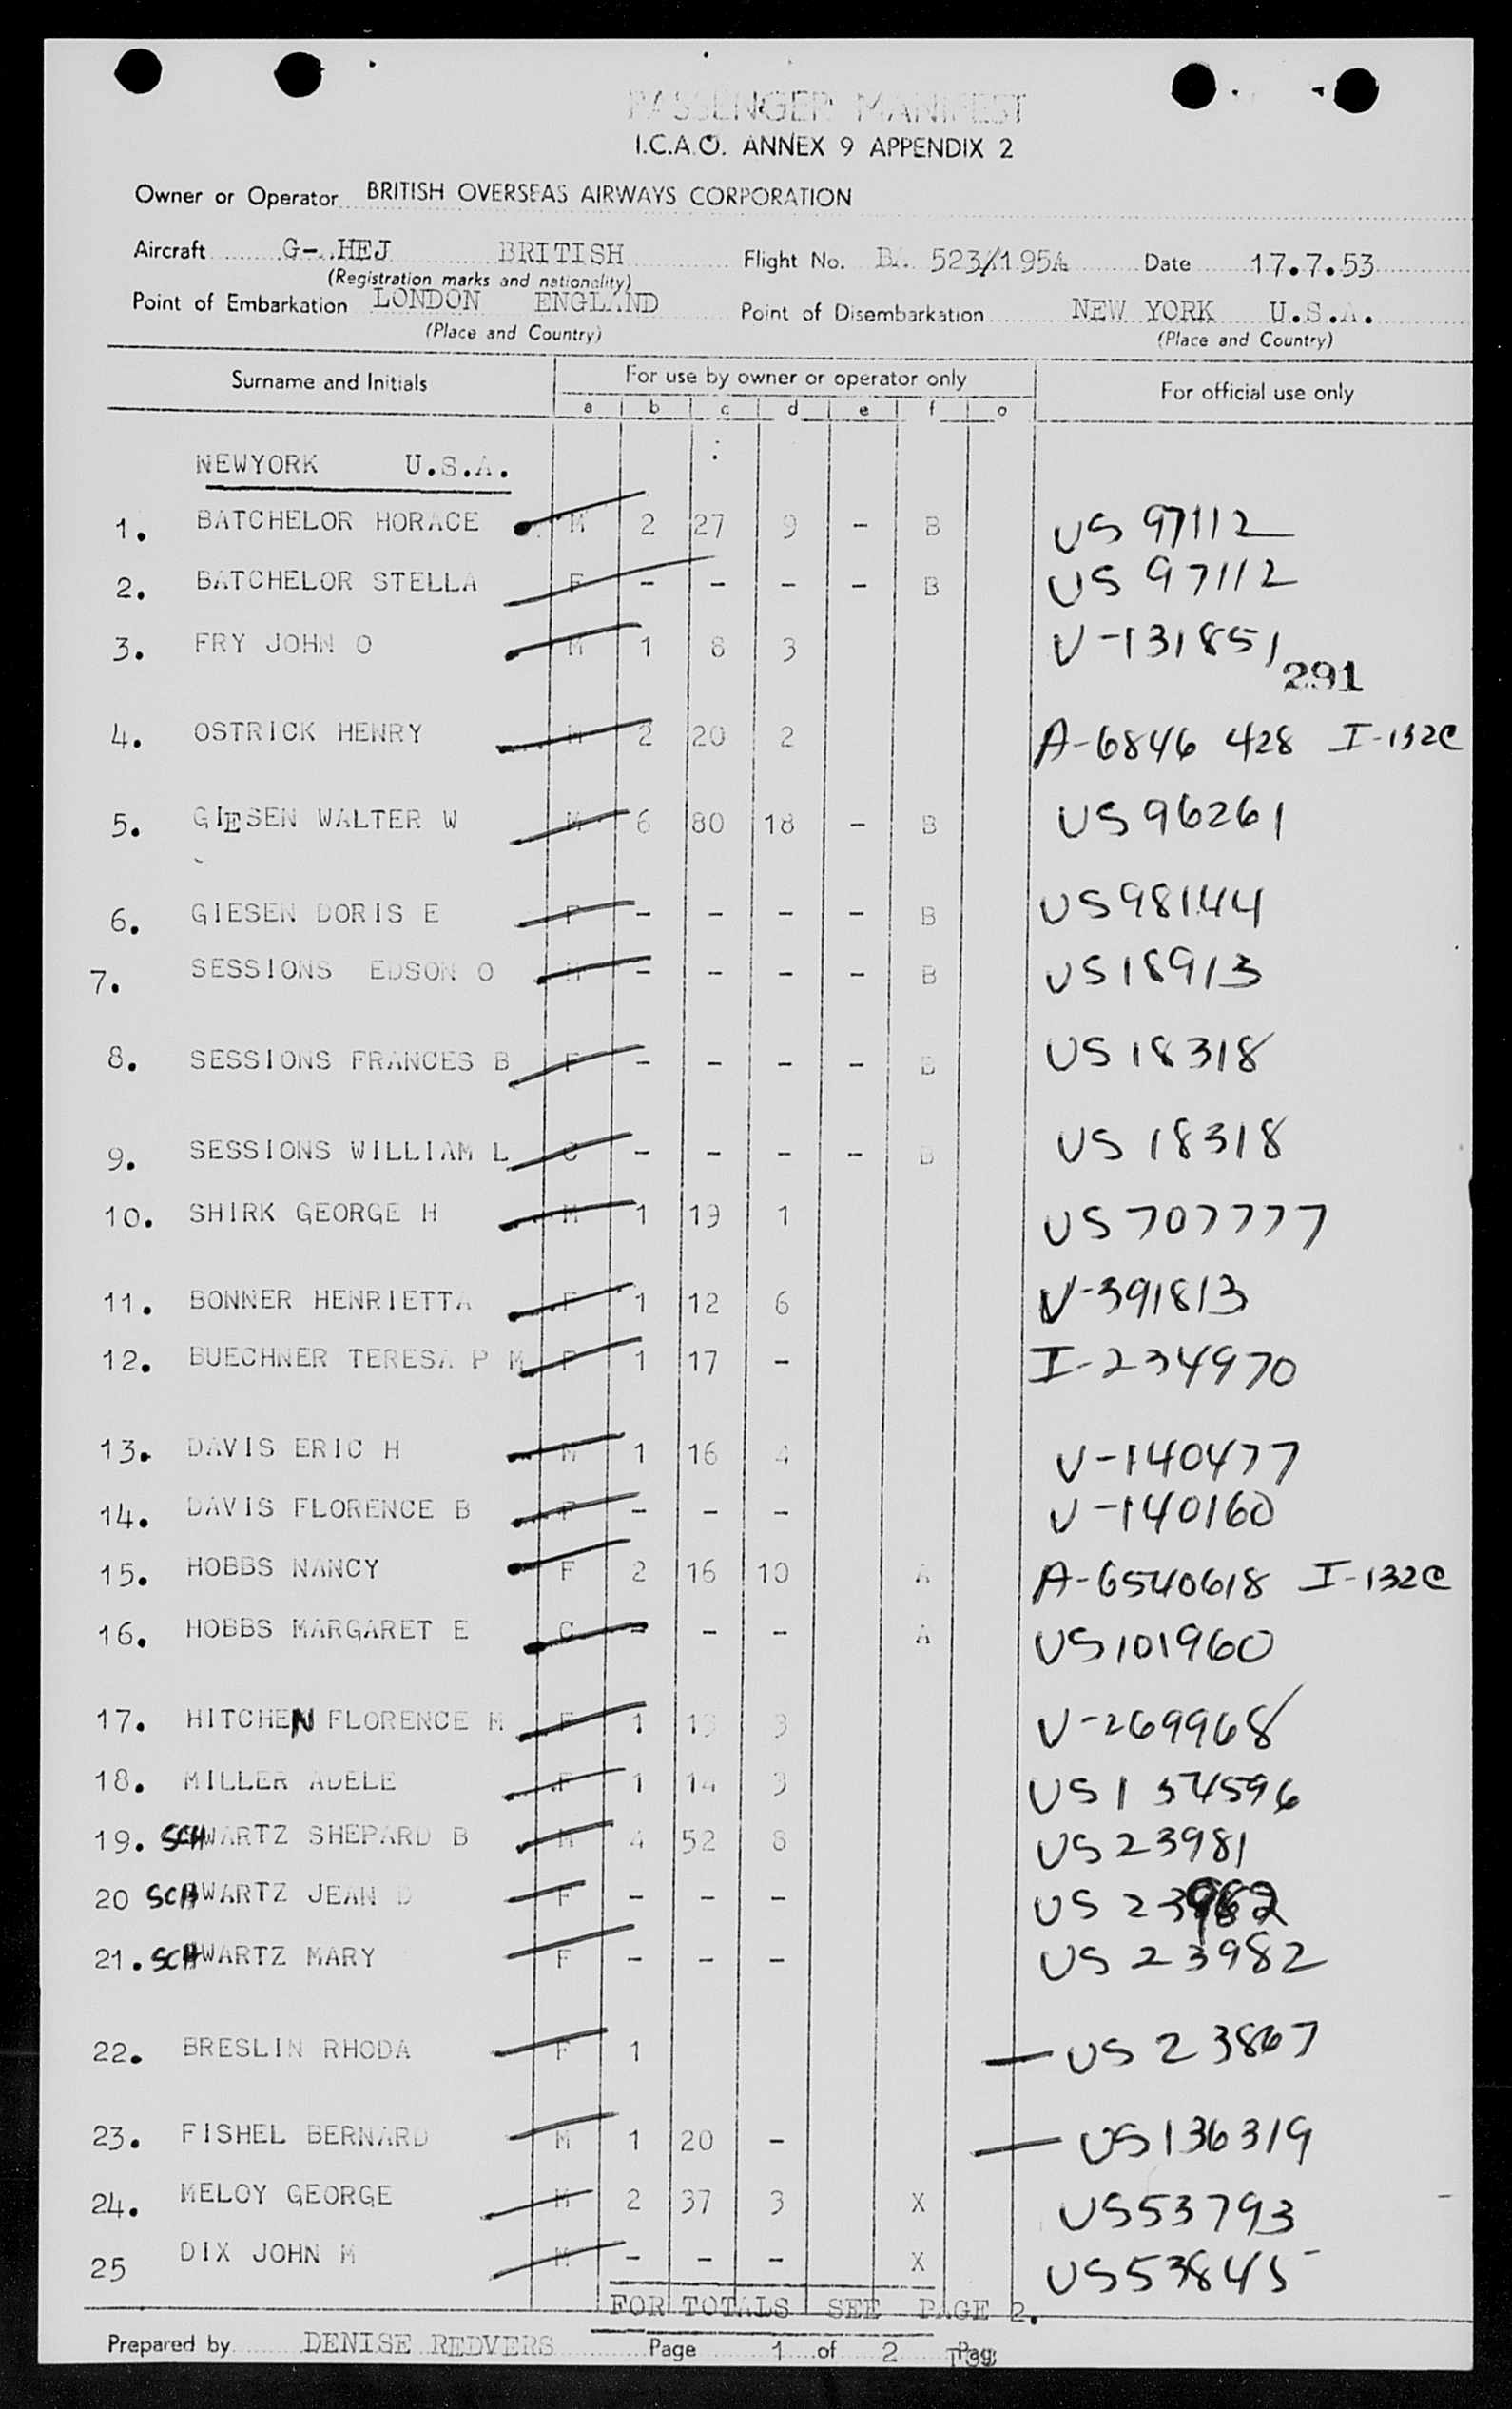 PASSENGER MANIFEST
I.C.A.O. ANNEX 9 APPENDIX 2
Owner or Operator BRITISH OVERSEAS AIRWAYS CORPORATION
Aircraft G-.HEJ BRITISH Flight No. BA 523/195A Date 17.7.53
(Registration marks and nationality)
Point of Embarkation LONDON ENGLAND Point of Disembarkation NEW YORK U.S.A.
(Place and Country) (Place and Country)
Surname and Initials For use by owner or operator only For official use only
a b c d e f o
NEWYORK U.S.A.
1. BATCHELOR HORACE M 2 27 9 - B US 97112
2. BATCHELOR STELLA F - - - - B US 97112
3. FRY JOHN O M 1 8 3 V-131851
291
4. OSTRICK HENRY M 2 20 2 A-6846 428 I-132C
5. GIESEN WALTER W M 6 80 18 - B US 96261
6. GIESEN DORIS E F - - - - B US98144
7. SESSIONS EDSON O M - - - - B US18913
8. SESSIONS FRANCES B F - - - - B US 18318
9. SESSIONS WILLIAM L C - - - - B US 18318
10. SHIRK GEORGE H M 1 19 1 US 707777
11. BONNER HENRIETTA F 1 12 6 V-391813
12. BUECHNER TERESA P M F 1 17 - I-234970
13. DAVIS ERIC H M 1 16 4 V-140477
14. DAVIS FLORENCE B F - - - V-140160
15. HOBBS NANCY F 2 16 10 A A-6540618 I-132C
16. HOBBS MARGARET E C - - - A US101960
17. HITCHEN FLORENCE M F 1 13 3 V-269968
18. MILLER ADELE F 1 14 3 US 134596
19. SCHWARTZ SHEPARD B M 4 52 8 US 23981
20 SCHWARTZ JEAN D F - - - US
21. SCHWARTZ MARY F - - - US 23982
22. BRESLIN RHODA F 1 — US 23867
23. FISHEL BERNARD M 1 20 - — US136319
24. MELOY GEORGE M 2 37 3 X US53793
25 DIX JOHN M M - - - X US53845
FOR TOTALS SEE PAGE 2.
Prepared by DENISE REDVERS Page 1 of 2 Pag